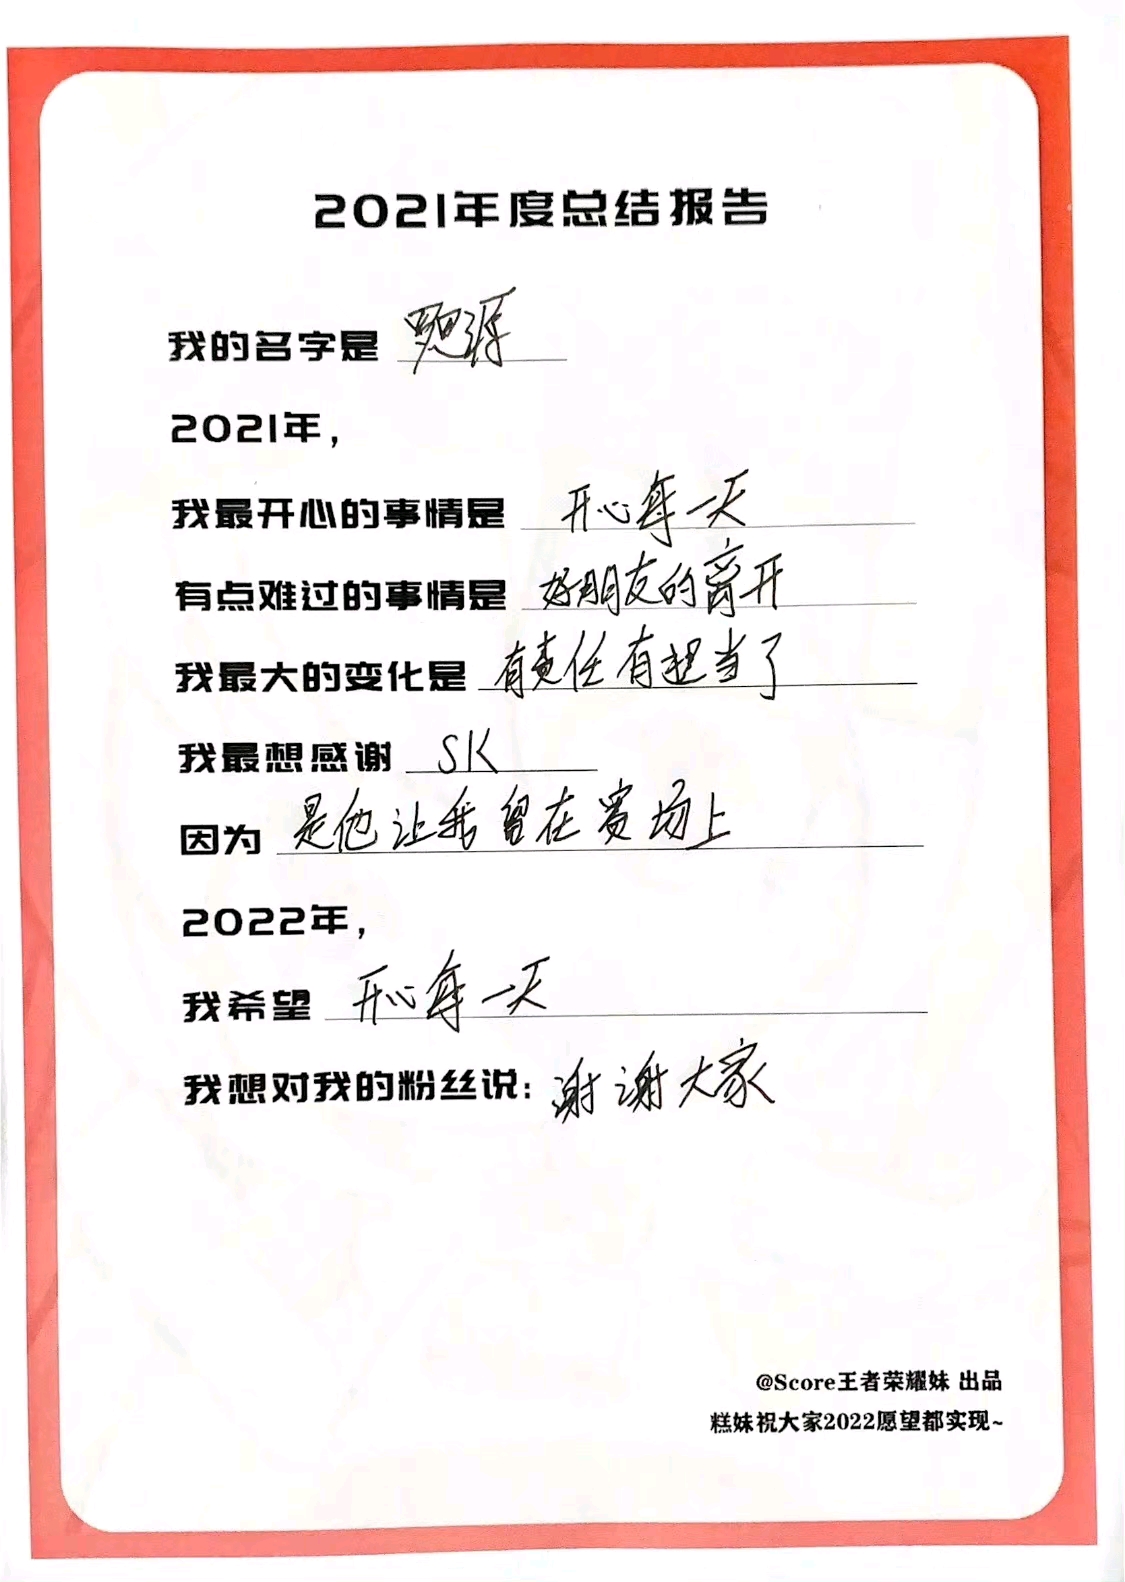 2021年度总结报告
我的名字是 罗思源
2021年,
我最开心的事情是 开心每一天
有点难过的事情是 好朋友的离开
我最大的变化是 有责任有担当了
我最想感谢 SK
因为 是他让我留在赛场上
2022年,
我希望 开心每一天
我想对我的粉丝说: 谢谢大家
@Score王者荣耀妹 出品
糕妹祝大家2022愿望都实现~